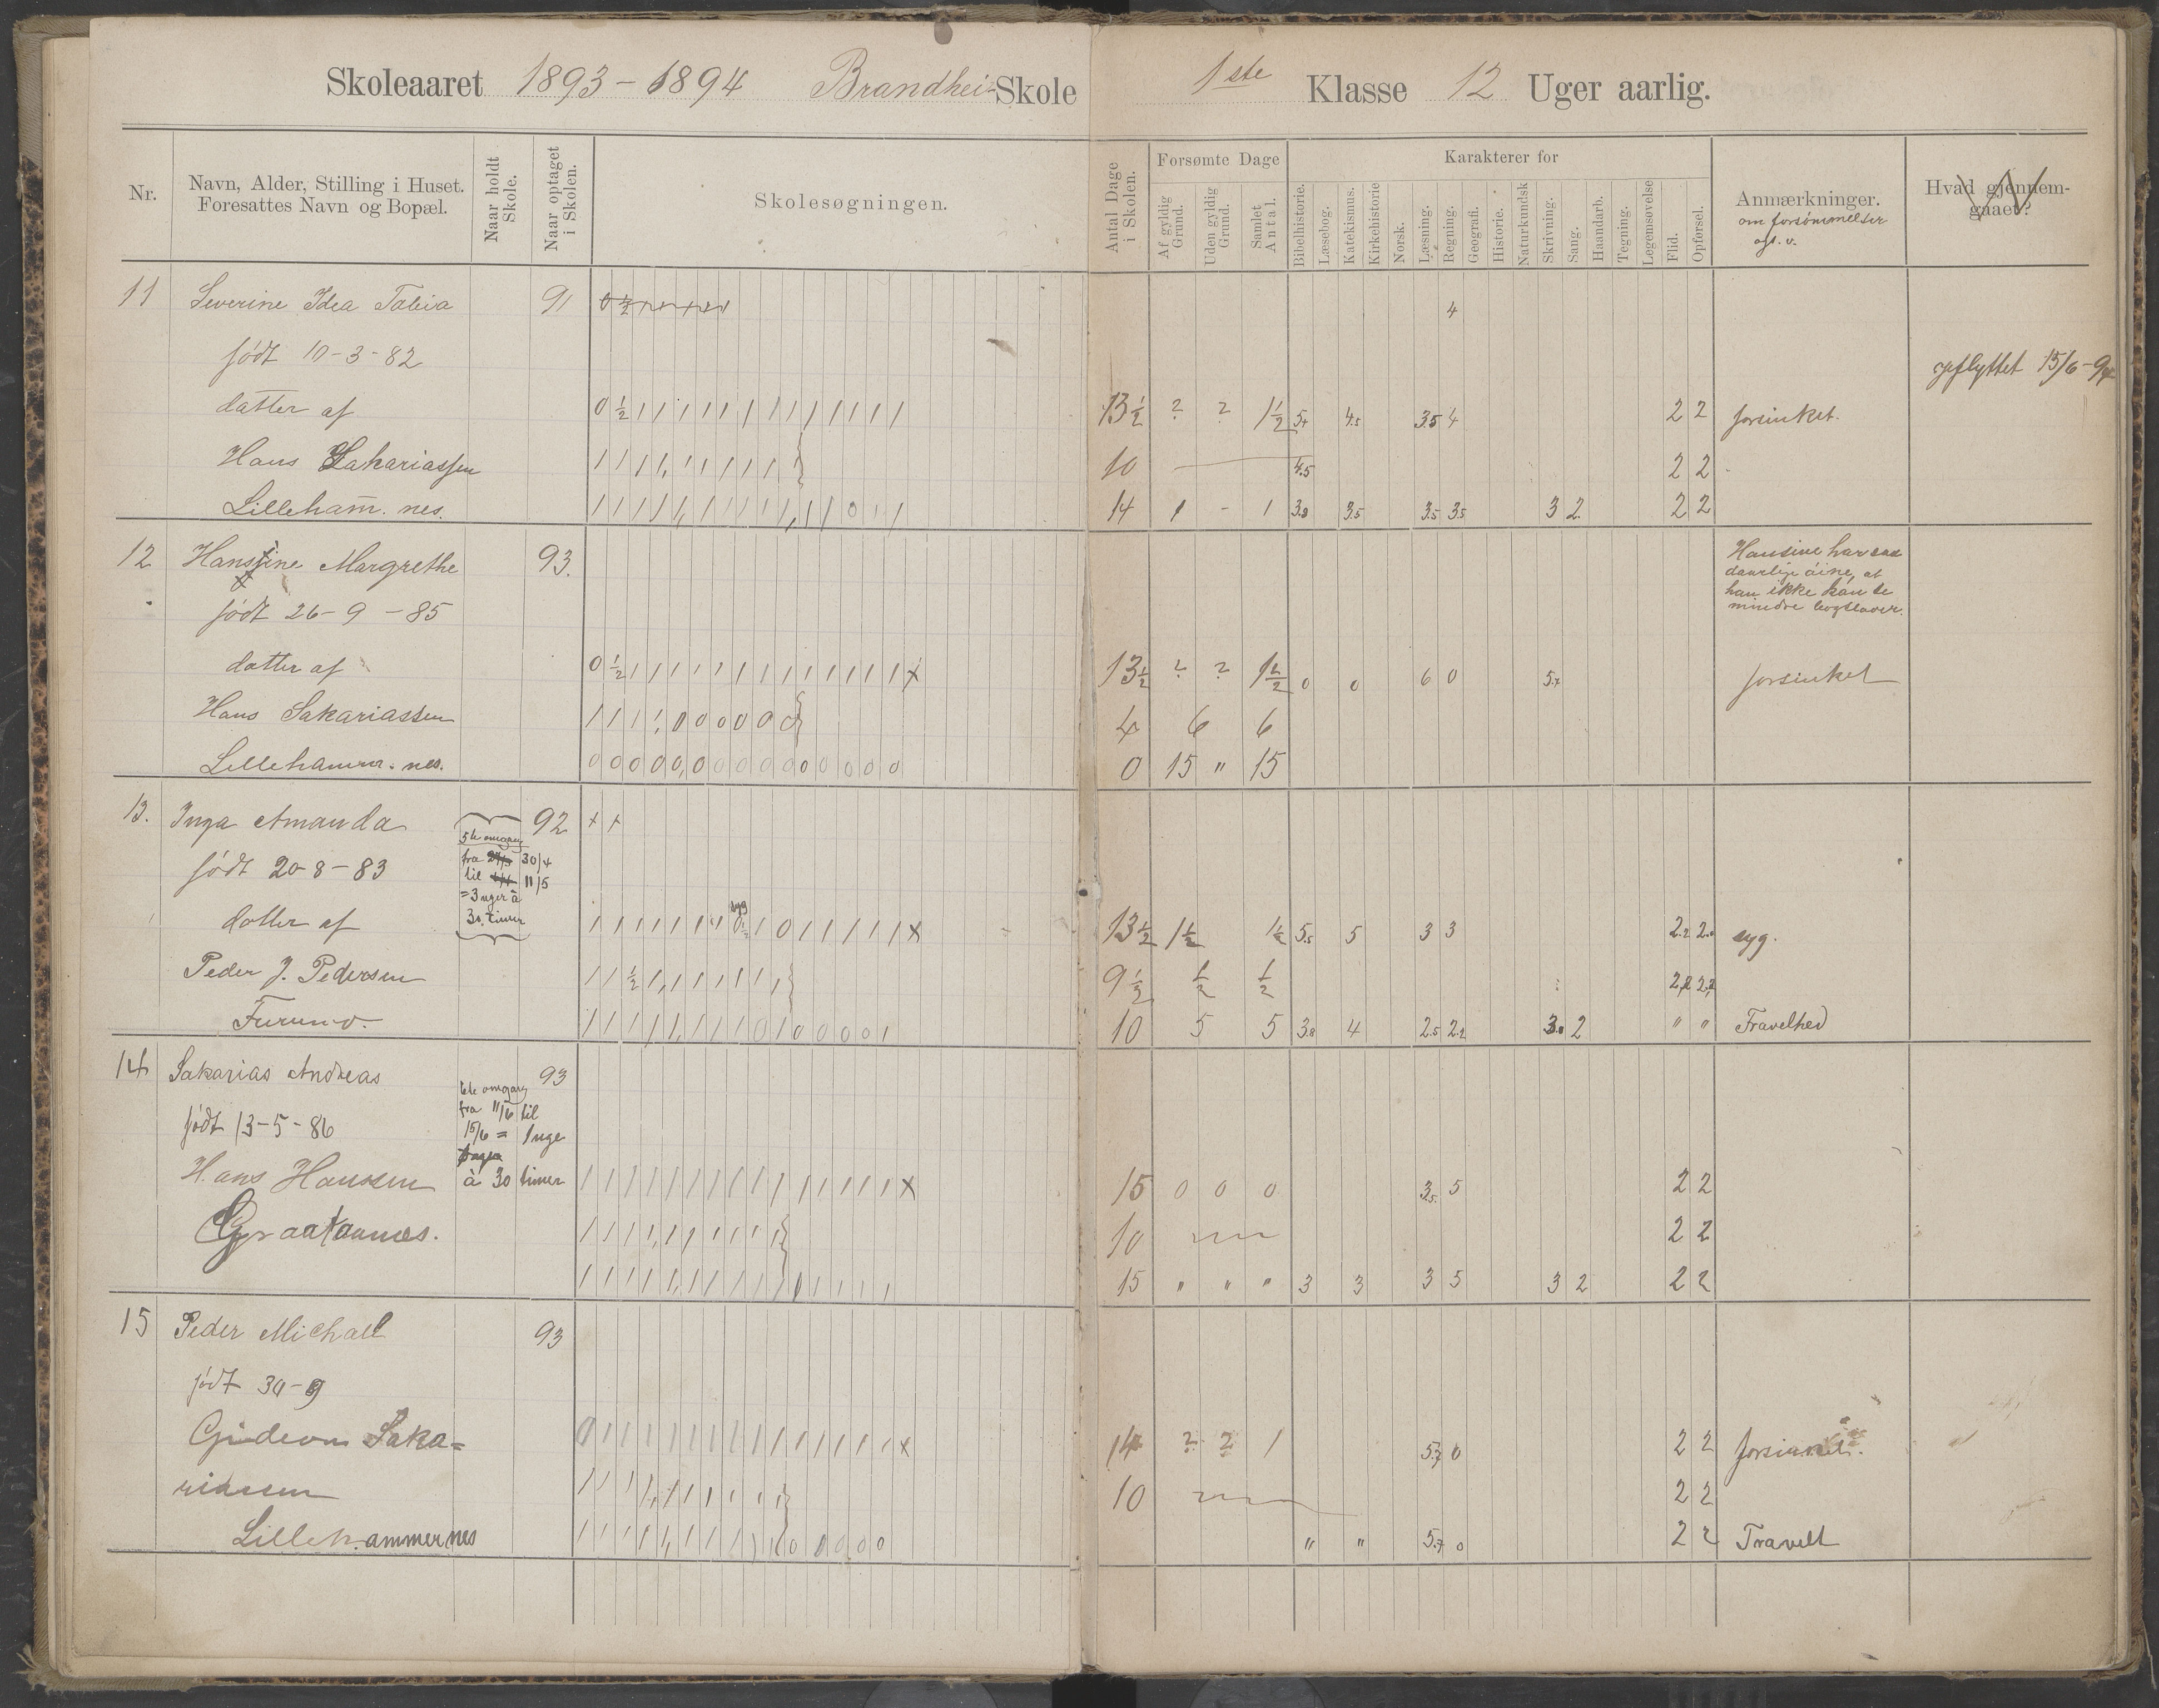 Skoleaaret 1893-1894 Brandhei-Skole 1ste Klasse 12 Uger aarlig.
Nr.
Navn, Alder, Stilling i Huset.
Foresattes Navn og Bopæl.
Naar holdt Skole.
Naar optaget i Skolen.
Skolesøgningen.
Antal Dage i Skolen.
Forsømte Dage
Af gyldig Grund.
Uden gyldig Grund.
Samlet Antal.
Karakterer for
Bibelhistorie.
Læsebog.
Katekismus.
Kirkehistorie
Norsk.
Læsning.
Regning.
Geografi.
Historie.
Naturkundsk
Skrivning.
Sang.
Haandarb.
Tegning.
Legemsøvelse
Flid.
Opførsel.
Anmærkninger.
om forsömmelser
Hvad gjennem-
gaaet?
11 Severine Idea Tabia 91 4
född 10-3-82
opflyttet 15/6-94
datter af 0 ½ 1 1 1 1 1 1 1 1 1 1 1 1 1 13½ ? ? 1½ 4.5 3.5 4 2 2 forsinket.
Hans Sakariassen 1 1 1 1 1 1 1 1 1 1 10 4.5 2 2
Lilleham. nes. 1 1 1 1 1 1 1 1 1 1 1 1 0 1 1 14 1 - 1 3.8 3.5 3.5 3.5 3 2 2 2
12 Hansine Margrethe 93.
Hansine har saa
daarlige öine, at
han ikke kan se
mindre bogstaver.
född 26-9-85
datter af 0 ½ 1 1 1 1 1 1 1 1 1 1 1 1 1 x 13½ ? ? 1½ 0 0 6 0 5.7 forsinket
Hans Sakariassen 1 1 1 1 0 0 0 0 0 0 4 6 6
Lillehamm. nes. 0 0 0 0 0 0 0 0 0 0 0 0 0 0 0 0 15 " 15
13. Inga Amanda 92 x x
5te omgang
fra 30/4
til 11/5
= 3 uger à
30 timer
född 20-8-83
datter af 1 1 1 1 1 1 1 syg 0 ½ 1 0 1 1 1 1 1 x 13½ 1½ 1½ 5.5 5 3 3 2.2 2. syg.
Peder J. Pedersen 1 1 ½ 1 1 1 1 1 1 1 9½ ½ ½
Furunes. 1 1 1 1 1 1 1 1 0 1 0 0 0 0 1 10 5 5 3.8 4 2.5 2.2 3. 2 " " Travelhed
14 Sakarias Andreas 93
6te omgang
fra 11/6 til
15/6 = 1 uge
à 30 timer
född 13-5-86
Hans Hanssen 1 1 1 1 1 1 1 1 1 1 1 1 1 1 1 x 15 0 0 0 3.5 5 2 2
1 1 1 1 1 1 1 1 1 1 10 2 2
1 1 1 1 1 1 1 1 1 1 1 1 1 1 1 15 " " " 3 3 3 5 3 2 2 2
15 Peder Michael 93
född 30-9
Gideon Saka= 0 1 1 1 1 1 1 1 1 1 1 1 1 1 1 x 14 ? ? 1 5.7 0 2 2 forsinket.
riassen 1 1 1 1 1 1 1 1 1 1 10 2 2
Lillehammernes 1 1 1 1 1 1 1 1 1 1 0 0 0 0 0 " " 5.7 0 2 2 Travelt